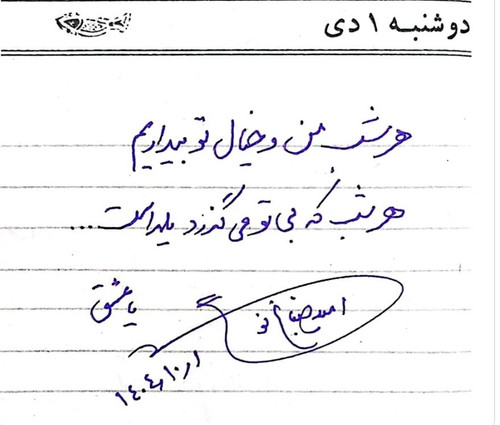 دوشنبه ۱ دی
هر شب من و خیال تو بیداریم
هر شب که بی تو می گذرد یلداست....
یا عشق
امید صباغ نو
۱۴۰۴/۱۰/۱